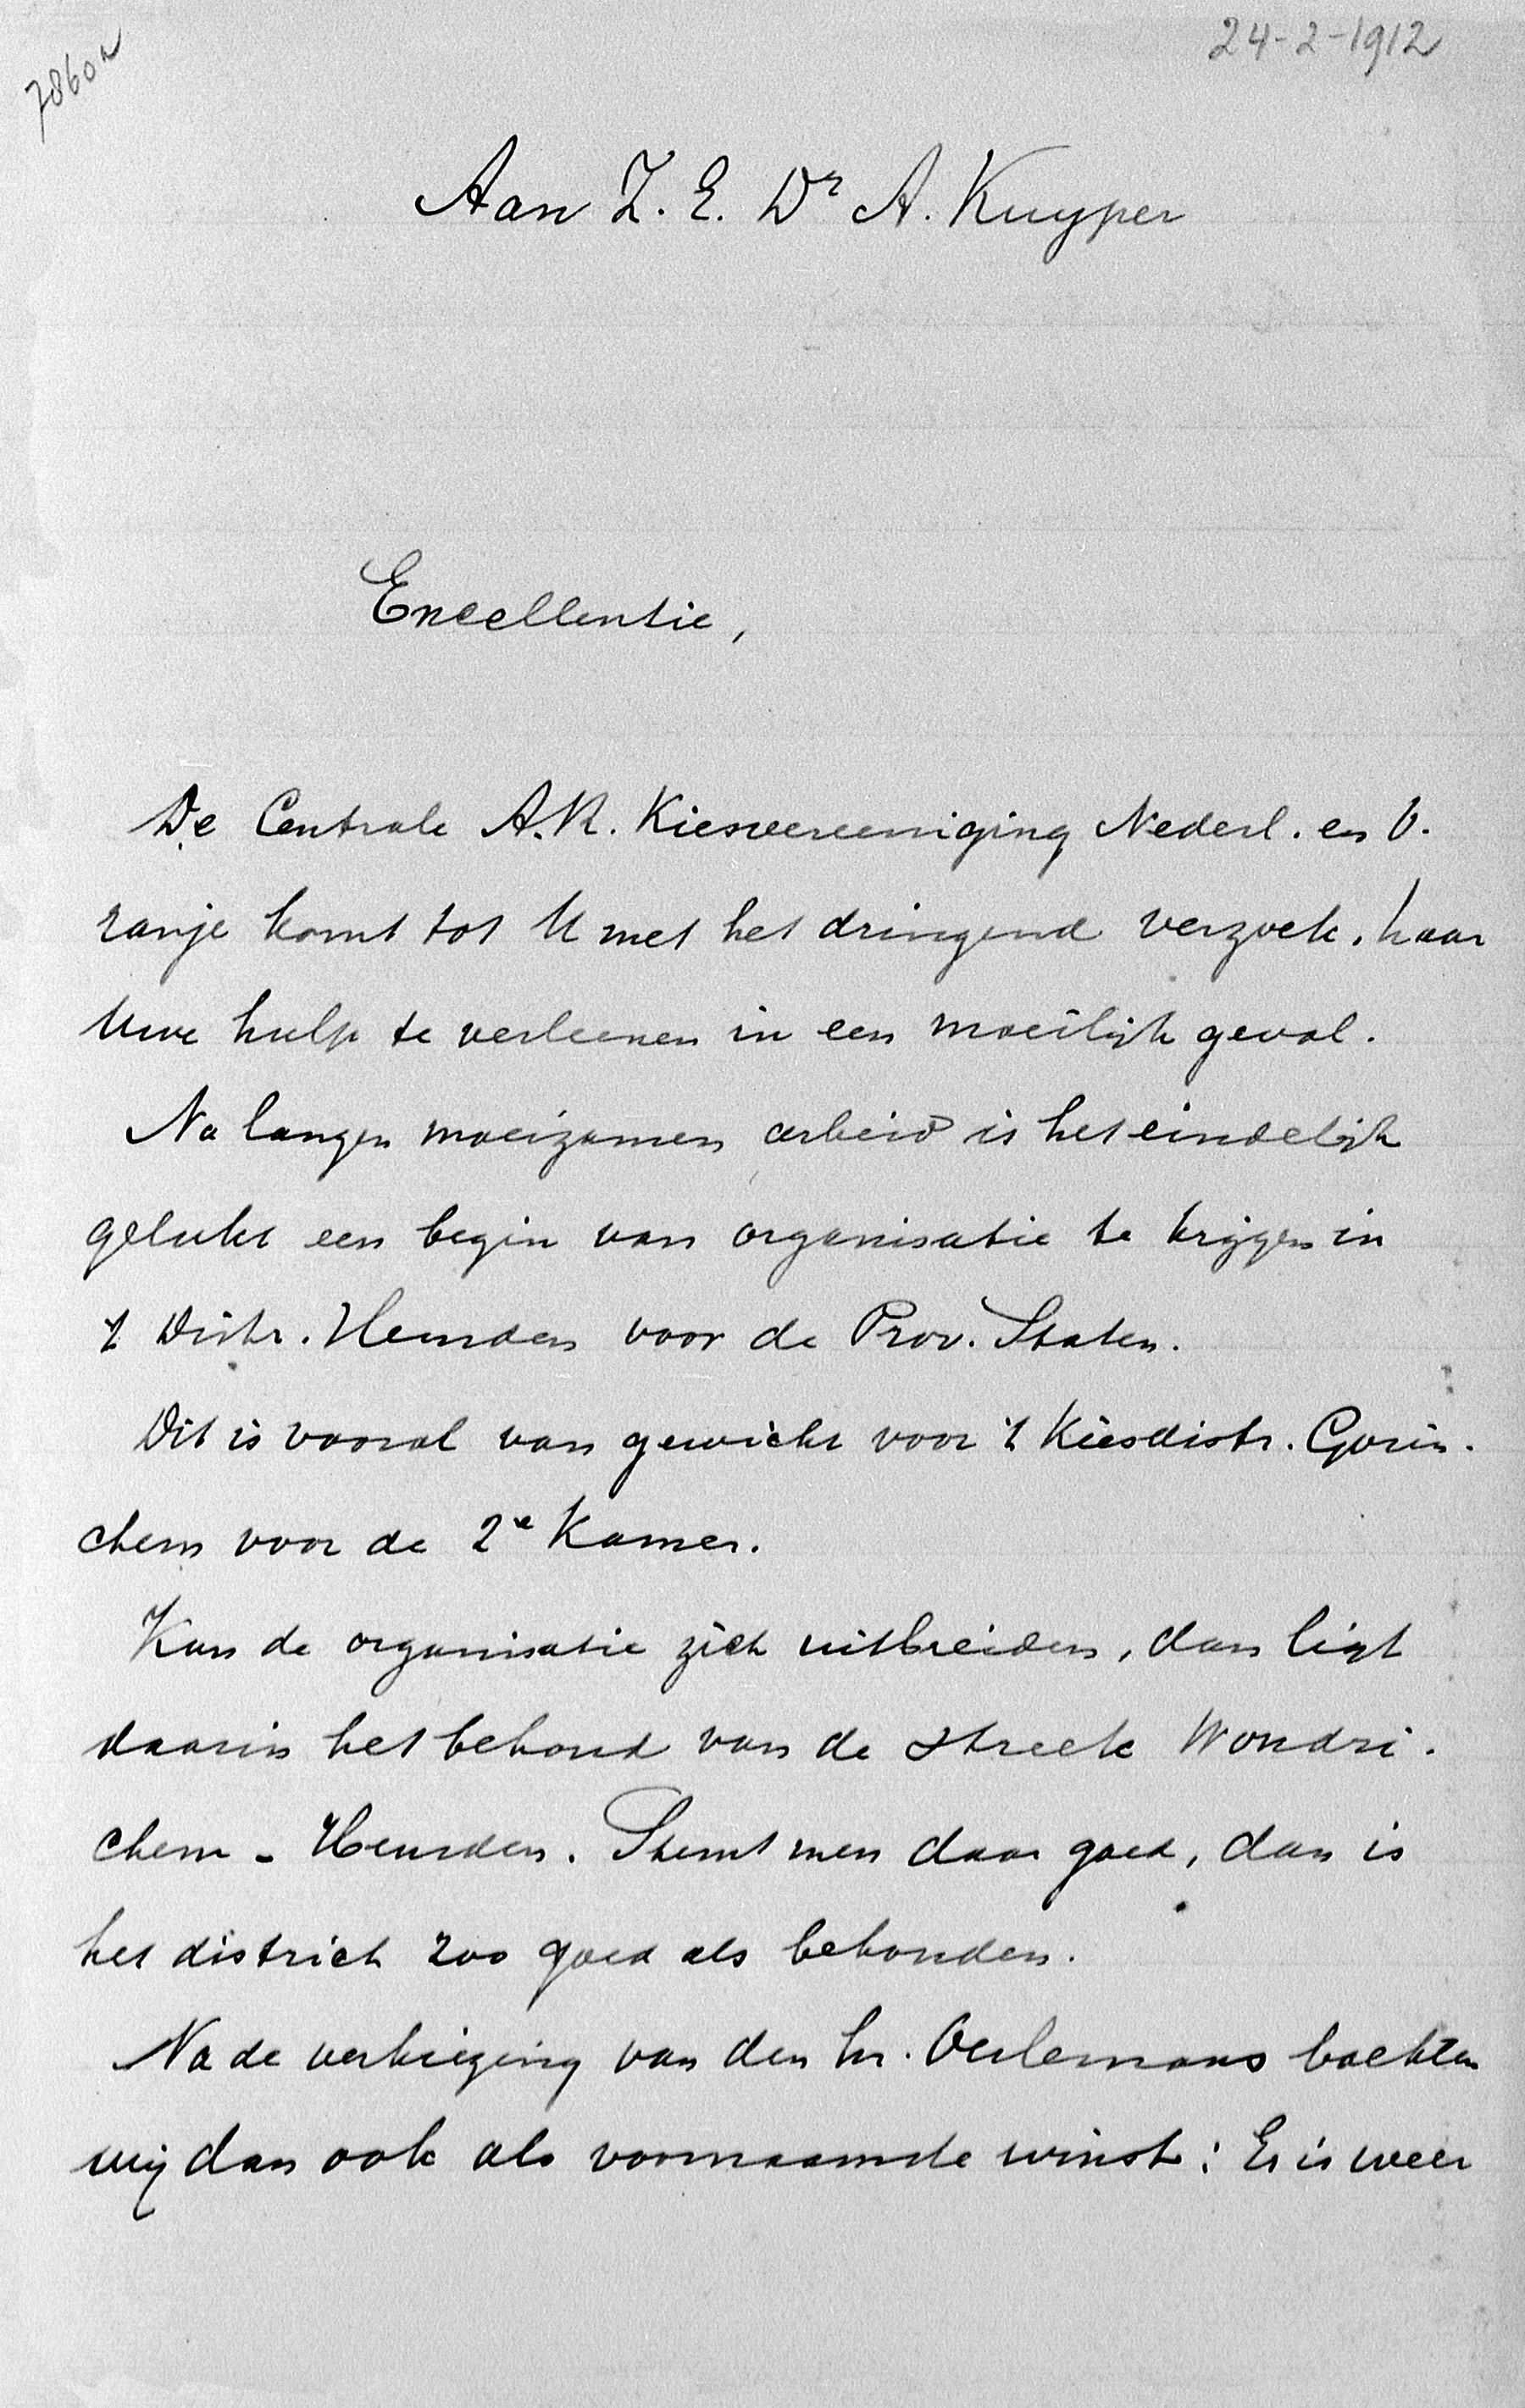 7860a
24-2-1912
Aan Z. E. Dr A. Kuyper
Excellentie,
De Centrale A.R. Kiesvereeniging Nederl. en O.
ranje komt tot U met het dringend verzoek, haar
Uwe hulp te verleenen in een moeilijk geval.
Na langen moeizamen arbeid is het eindelijk
gelukt een begin van organisatie te krijgen in
't Distr. Heusden voor de Prov. Staten.
Dit is vooral van gewicht voor 't Kiesdistr. Gorin-
chem voor de 2e Kamer.
Kan de organisatie zich uitbreiden, dan ligt
daarin het behoud van de streek Woudri-
chem - Heusden. Stemt men daar goed, dan is
het district zoo goed als behouden.
Na de verkiezing van den hr. Oerlemans boekten
wij dan ook als voornaamste winst: Er is weer